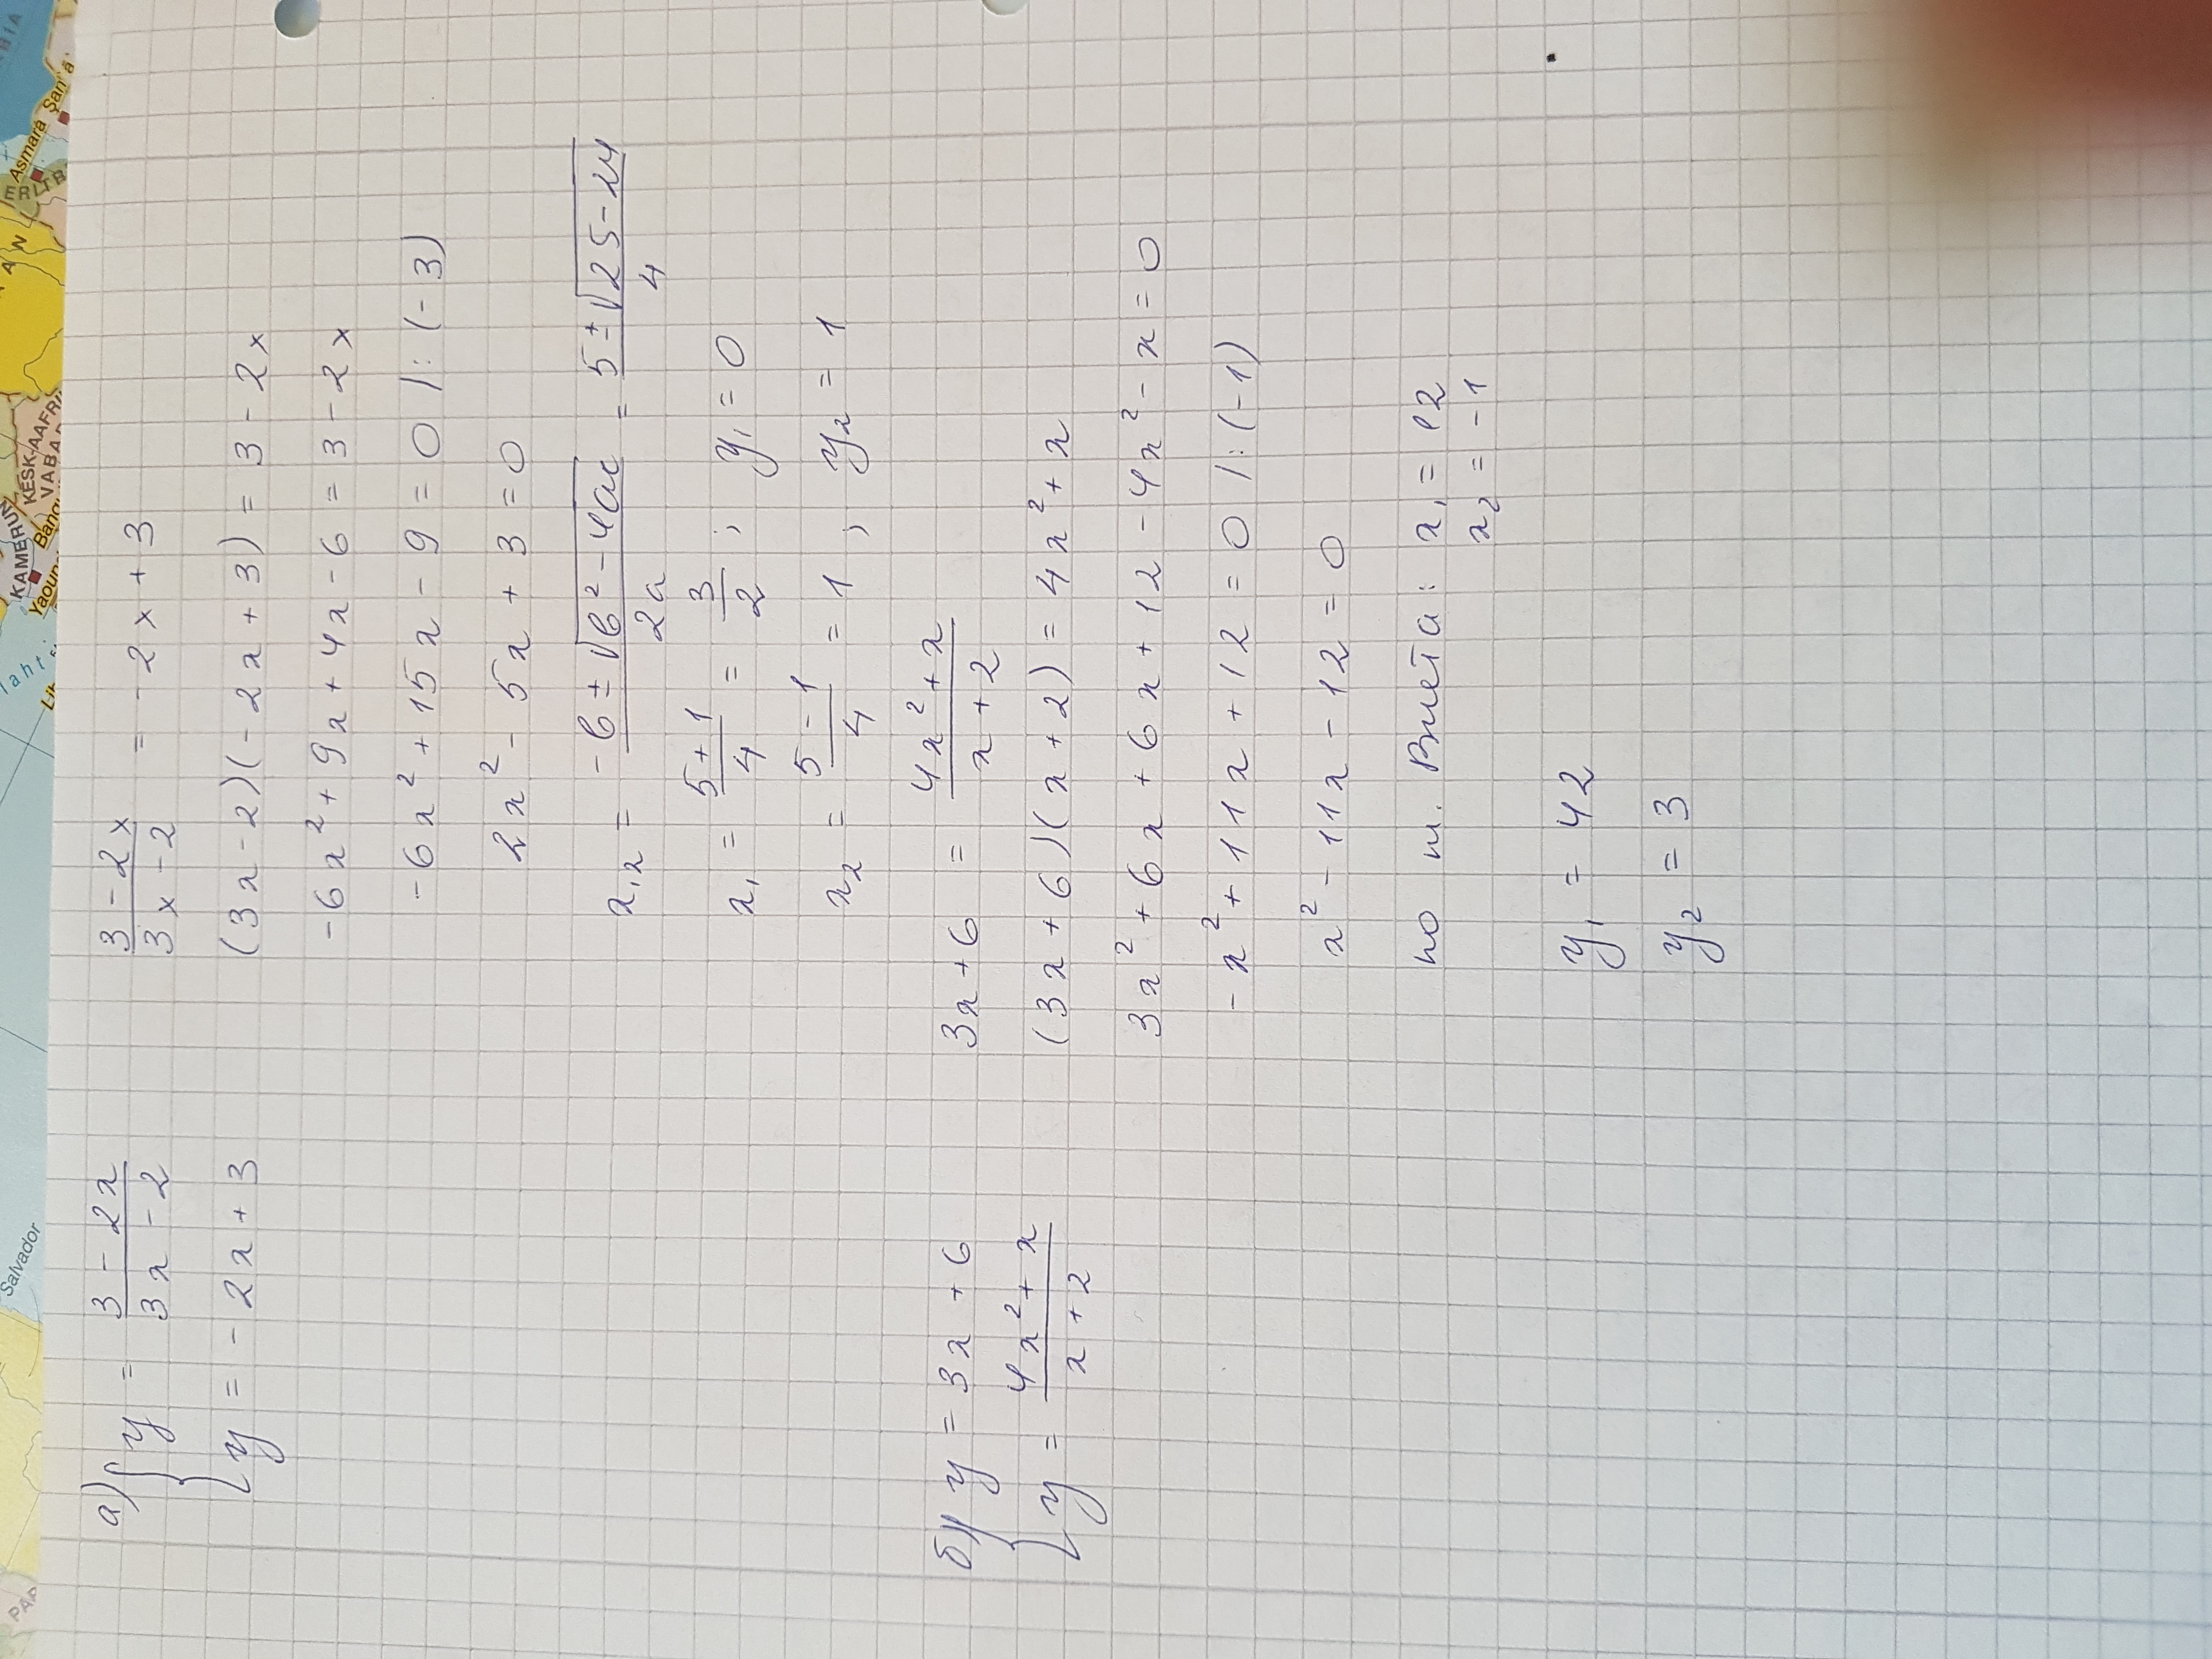 а) { y = (3 - 2x)/(3x - 2)
y = - 2x + 3
(3 - 2x)/(3x - 2) = - 2x + 3
(3x - 2)(- 2x + 3) = 3 - 2x
- 6x² + 9x + 4x - 6 = 3 - 2x
- 6x² + 15x - 9 = 0 | : (- 3)
2x² - 5x + 3 = 0
x₁,₂ = (- b ± √(b² - 4ac))/2a = (5 ± √(25 - 24))/4
x₁ = (5 + 1)/4 = 3/2 ; y₁ = 0
x₂ = (5 - 1)/4 = 1 ; y₂ = 1
б) { y = 3x + 6
y = (4x² + x)/(x + 2)
3x + 6 = (4x² + x)/(x + 2)
(3x + 6)(x + 2) = 4x² + x
3x² + 6x + 6x + 12 - 4x² - x = 0
- x² + 11x + 12 = 0 | : (- 1)
x² - 11x - 12 = 0
по т. Виета : x₁ = 12
x₂ = - 1
y₁ = 42
y₂ = 3
Salvador
KAMERUN
KESK-AAFRI
VABA
Yaoun
Bang
Asmara
San'a
ER